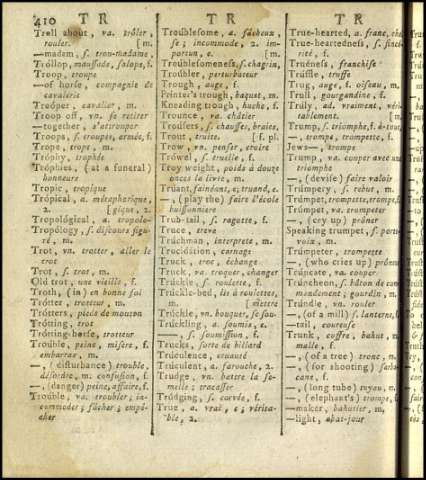 410 TR TR TR
Trell about, va. trôler,
rouler. [m.
—madam, s. trou-madame,
Tróllop, maussade, salope, f.
Troop, troupe
—of horse, compagnie de
cavalerie
Troóper, cavalier, m.
Troop off, vn. se retirer
—together, s'attrouper
Troops, s. troupes, armée, f.
Trope, trope, m.
Tróphy, trophée
Tróphies, (at a funeral)
honneurs
Tropic, tropique
Trópical, a. métaphorique,
2. [gique, 2.
Tropológical, a. tropolo-
Tropólogy, s. discours figu-
ré, m.
Trot, vn. trotter, aller le
trot
Trot, s. trot, m.
Old trot, une vieille, f.
Troth, (in) en bonne foi
Trótter, trotteur, m.
Trótters, pieds de mouton
Trótting, trot
Trótting-horse, trotteur
Troúble, peine, misère, f.
embarras, m.
—, (disturbance) trouble,
désordre, m. confusion, f.
—, (danger) peine, affaire, f.
Troúble, va. troubler; in-
commoder; fâcher; empê-
cher
Troúblesome, a. fâcheux,
se; incommode, 2. im-
portun, e. [m.
Troúblesomeness, s. chagrin,
Troúbler, perturbateur
Trough, auge, f.
Printer's trough, baquet, m.
Kneading trough, huche, f.
Trounce, va. châtier
Troúsers, s. chausses, braies,
Trout, truite [f. pl.
Trow, vn. penser, croire
Trówel, s. truelle, f.
Troy weight, poids à douze
onces la livre, m.
Trúant, fainéant, e; truand, e.
—, (play the) faire l'école
buissonniere
Trub-tail, s. ragotte, f.
Truce, treve
Trúchman, interprete, m.
Trucidátion, carnage
Truck, troc, échange
Truck, va. troquer, changer
Trúckle, s. roulette, f.
Trúckle-bed, lit à roulettes,
m. [mettre
Trúckle, vn. bouquer, se sou-
Trúckling, a. soumis, e.
—, s. soumission, f.
Trucks, sorte de billard
Trúculence, cruauté
Trúculent, a. farouche, 2.
Trudge, vn. battre la se-
melle; tracasser
Trúdging, s. corvée, f.
True, a. vrai, e; vérita-
ble, 2.
True-hearted, a. franc, che
True-heartedness, s. sincé-
rité, f.
Trueness, franchise
Trúffle, truffe
Trug, auge, f. oiseau, m.
Trull, gourgandine, f.
Trúly, ad. vraiment, véri-
tablement. [m.
Trump, s. triomphe, f. à-tout,
—, trompe, trompette, f.
Jews—, trompe
Trump, va. couper avec une
triomphe
—, (devise) faire valoir
Trúmpery, s. rebut, m.
Trúmpet, trompette, trompe, f.
Trúmpet, va. trompeter
—, (cry up) prôner
Speaking trumpet, s. porte-
voix, m.
Trúmpeter, trompette
—, (who cries up) prôneur
Trúncate, va. couper
Trúncheon, s. bâton de com-
mandement; gourdin, m.
Trúndle, vn. rouler
—, (of a mill) s. lanterne, f.
—tail, coureuse
Trunk, coffre, bahut, m.
malle, f.
—, (of a tree) tronc, m.
—, (for shooting) sarba-
cane, f.
—, (long tube) tuyau, m.
—, (elephant's) trompe, f.
—maker, bahutier, m.
—light, abat-jour